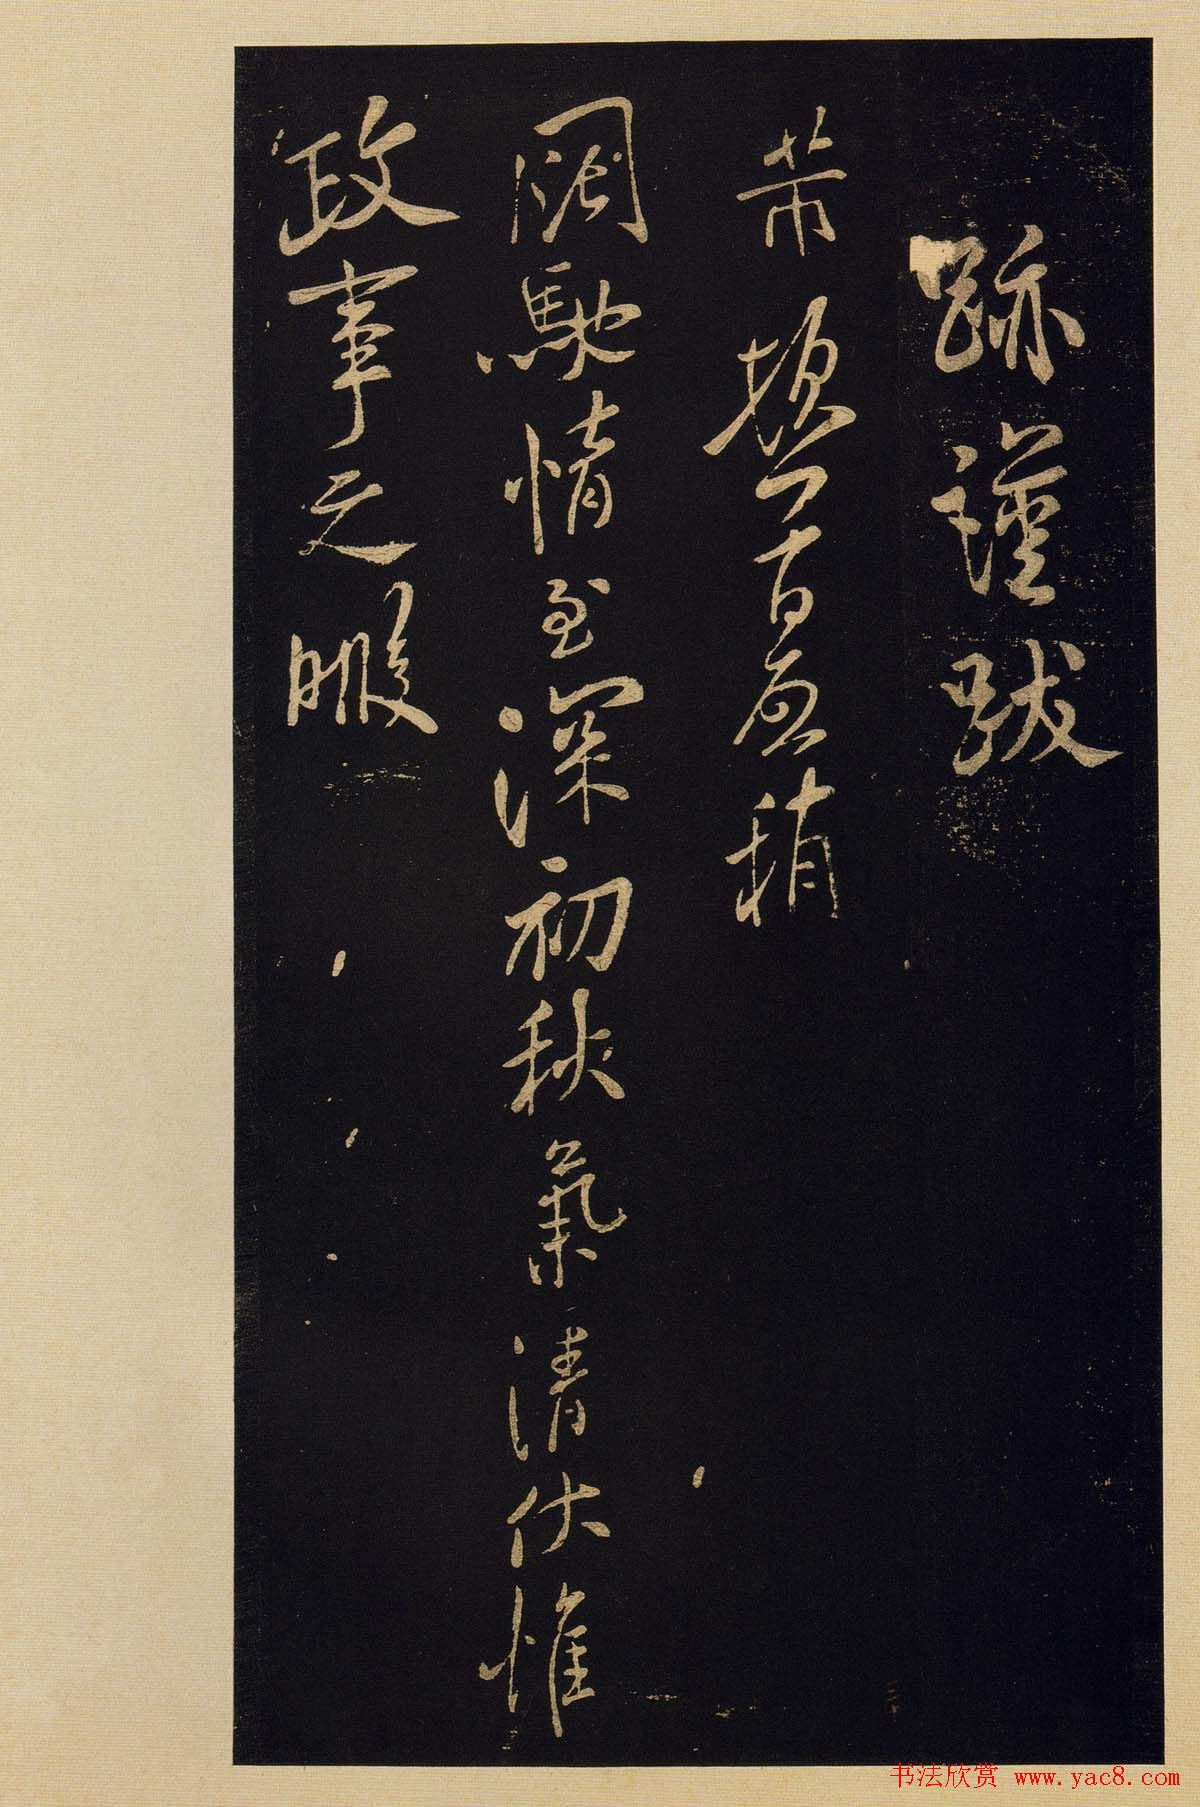 跡謹跋
芾頓首再啟稍
闊馳情至深初秋氣清伏惟
政事之暇
书法欣赏 www.yac8.com